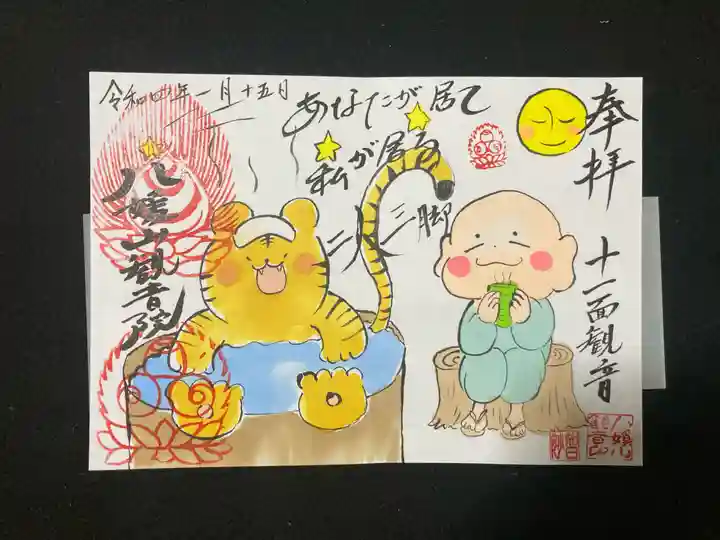 奉拝
十一面観音
あなたが居て
私が居る
二人三脚
令和四年一月十五日
八塩山観音院